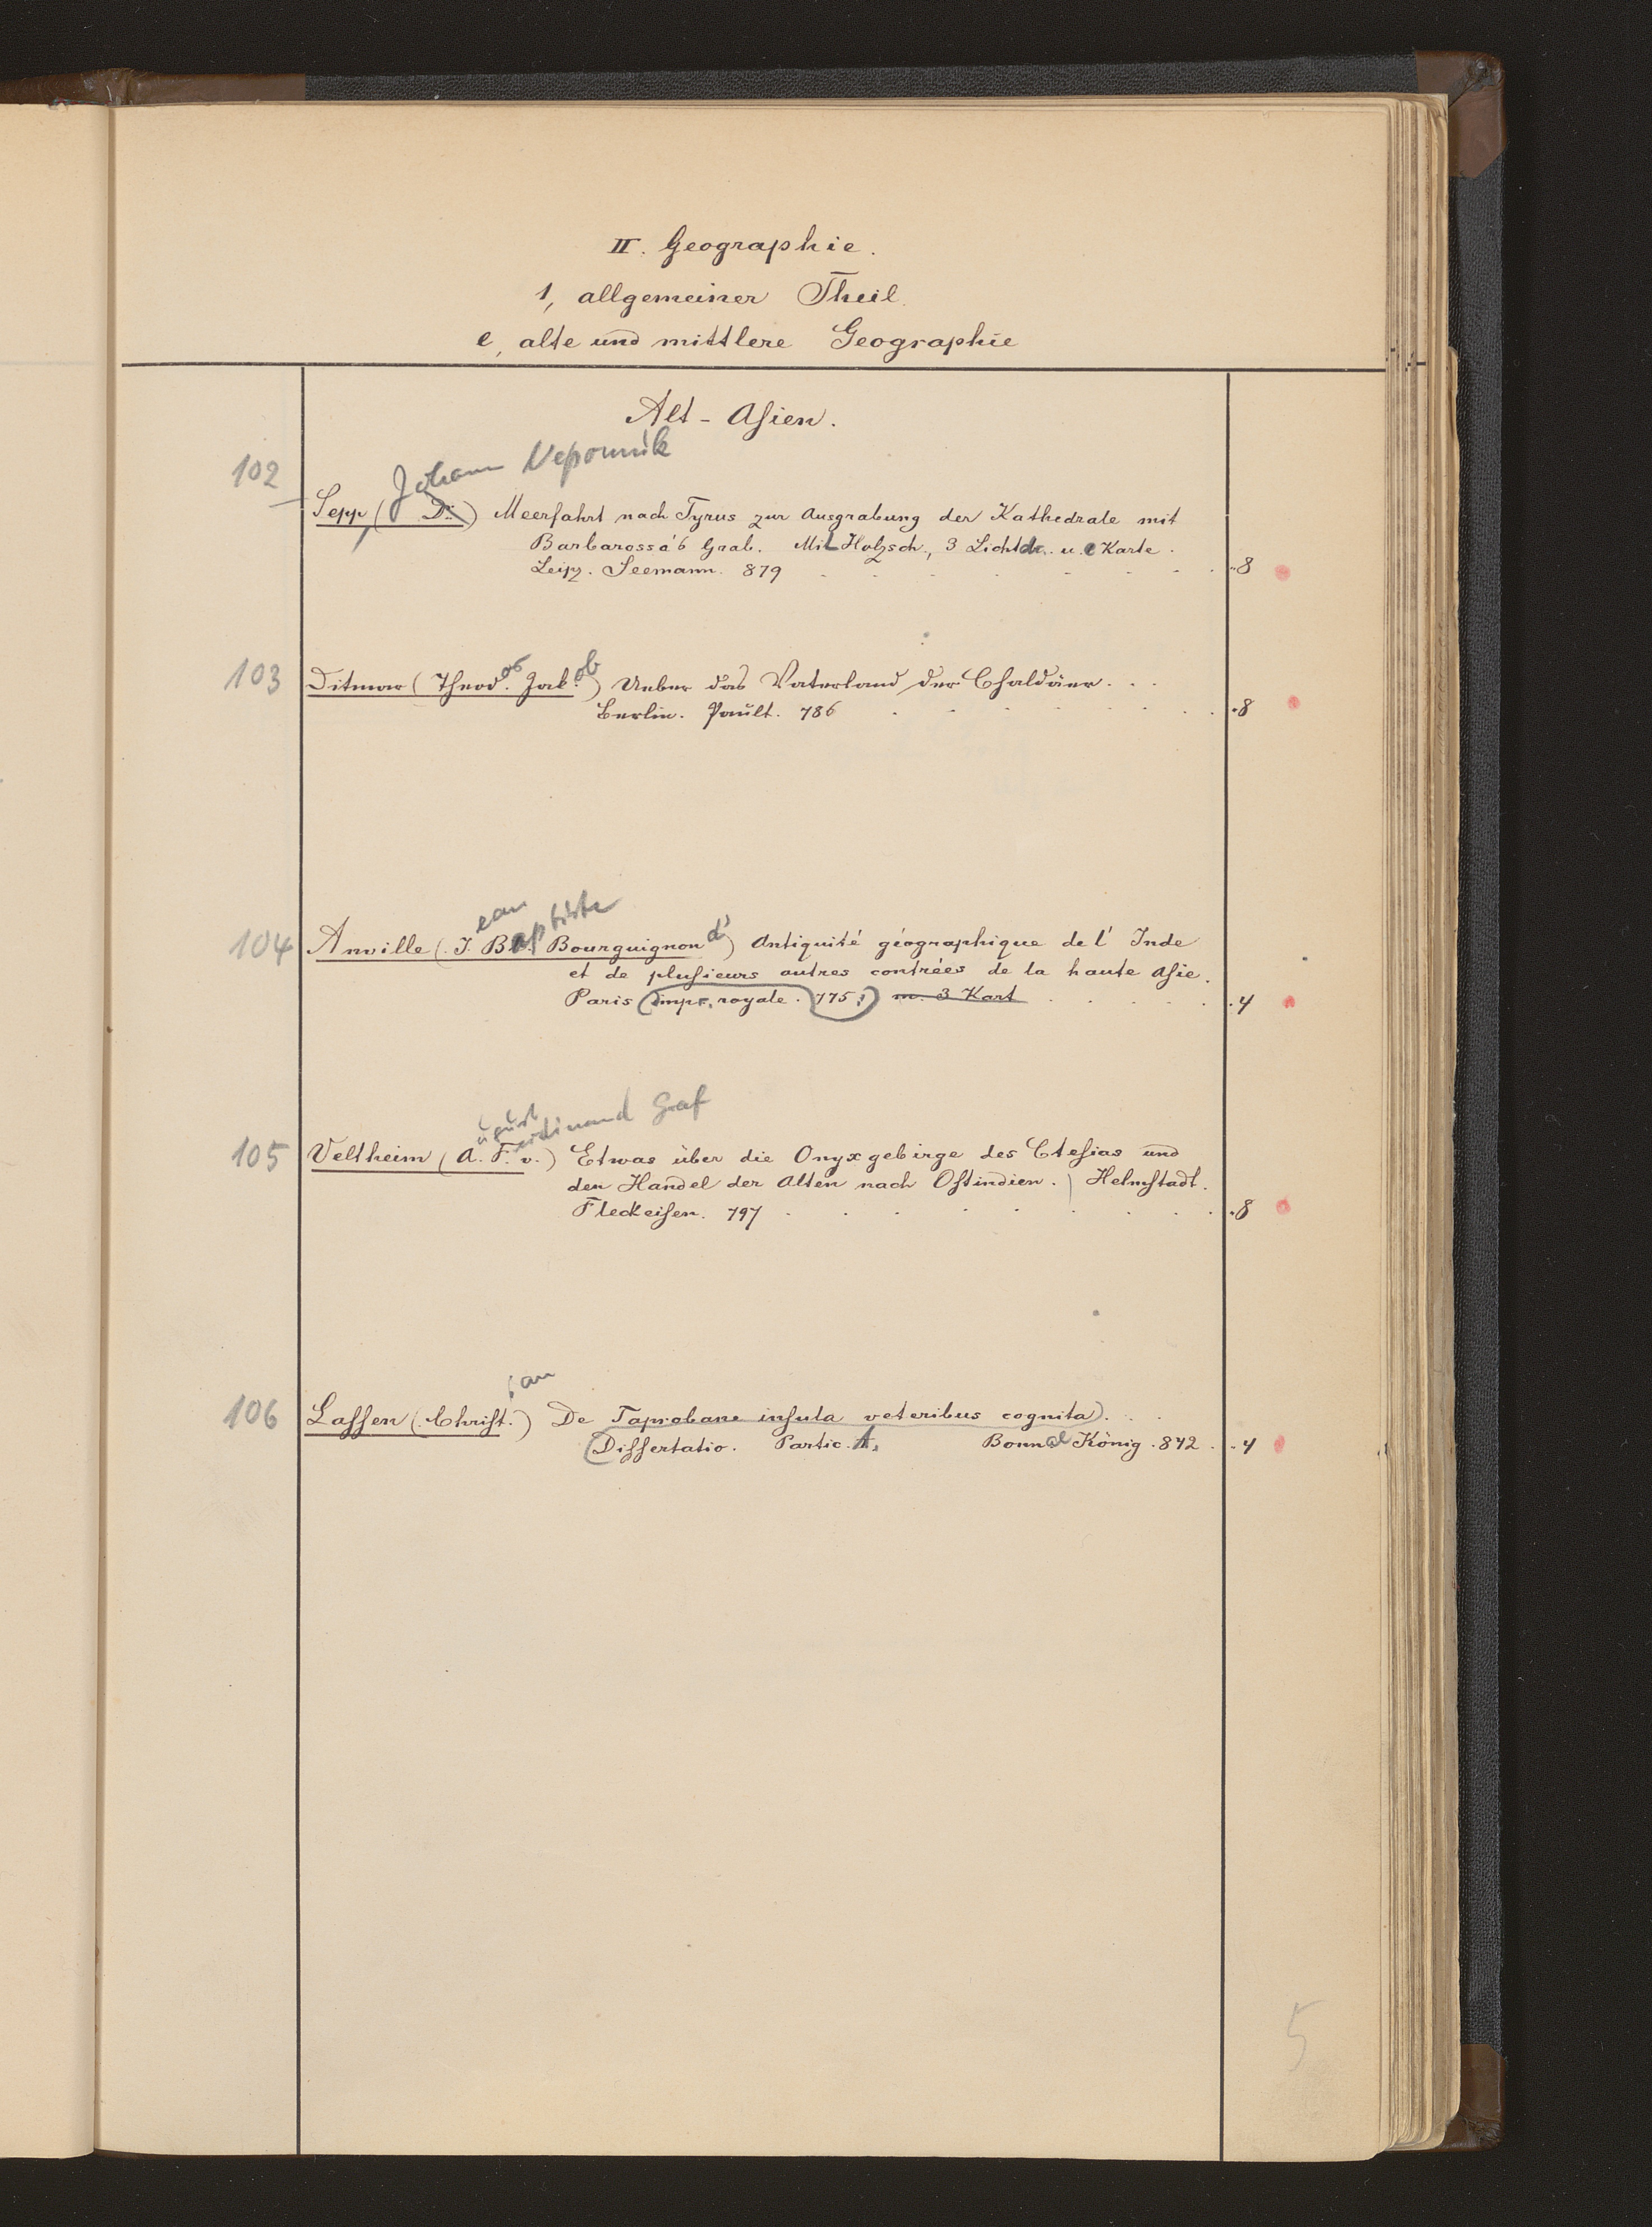 II. Geographie.
1, allgemeiner Theil.
e, alte und mittlere Geographie
Alt-Asien.
102
Johann Nepomuk
Sepp, (Dr.) Meerfahrt nach Tyrus zur Ausgrabung der Kathedrale mit
Barbarossa's Grab. Mit Holzsch., 3 Lichtdr. u. e Karte.
Leipz. Seemann. 879 . . . . . . . . 8
103 Ditmar (Theodor Jakob) Ueber das Vaterland der Chaldäer. . .
Berlin. Pault. 786 . . . . . . . 8
104 Anville (Jean Baptiste Bourguignon d') Antiquité géographique de l' Inde
et de plusieurs autres contrées de la haute Asie.
Paris (impr. royale. 775.) m. 3 Kart . . . . . 4
ugust erdinand Graf
105 Veltheim (A. F. v.) Etwas über die Onyxgebirge des Ctesias und
den Handel der Alten nach Ostindien. Helmstadt.
Fleckeisen. 797 . . . . . . . . 8
106 Lassen (Christian) De Taprobane insula veteribus cognita). . .
(Dissertatio. Partic. Bonn König. 842 . 4
5